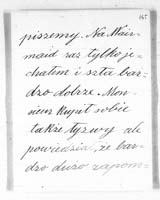 165
piszemy. Na Mair-
maid raz tylko je-
chałem i szła bar-
dzo dobrze. Mon-
sieur Kupił sobie
także tyzwy ale
powiedział, że bar-
dzo dużo zapom-